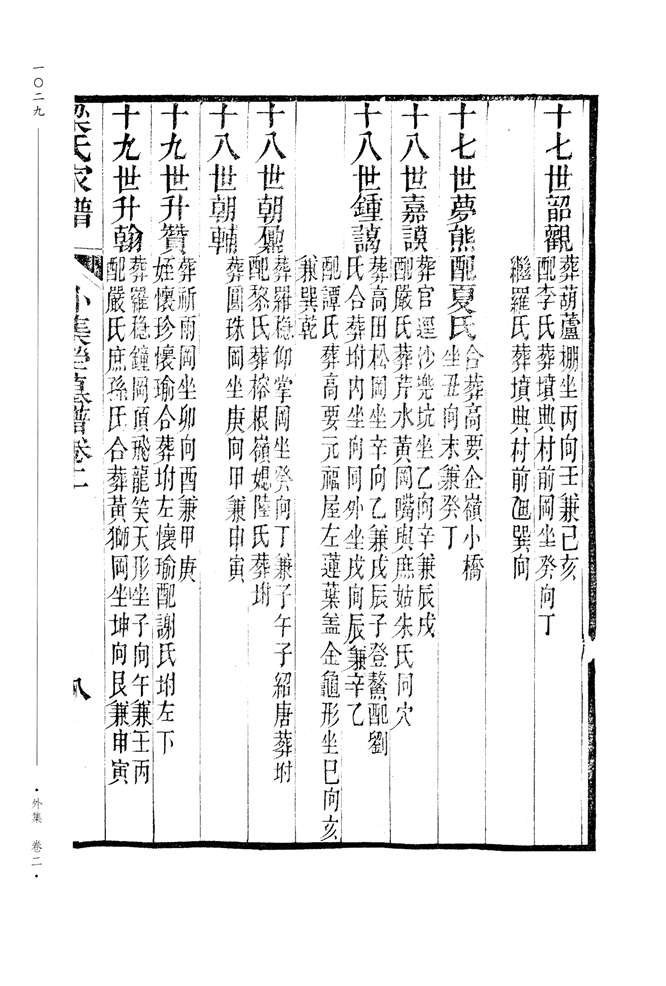 十七世韶觀
葬葫蘆棚坐丙向壬兼己亥
配李氏葬墳典村前岡坐癸向丁
繼羅氏葬墳典村前 巽向
十七世夢熊配夏氏
合葬高要企嶺小橋
坐丑向未兼癸丁
十八世嘉謨
葬官逕沙凳坑坐乙向辛兼辰戌
配嚴氏葬芹水黃岡嘴與庶姑朱氏同穴
十八世鍾謁
葬高田松岡坐辛向乙兼戌辰子登鰲配劉
氏合葬坿內坐向同外坐戌向辰兼辛乙
配譚氏葬高要元福屋左蓮葉盖金龜形坐巳向亥
兼巽乾
十八世朝鼐
葬羅穩仰掌岡坐癸向丁兼子午子紹唐葬坿
配黎氏葬榕根嶺媳陸氏葬坿
十八世朝輔
葬圓珠岡坐庚向甲兼申寅
十九世升贊
葬祈雨岡坐卯向酉兼甲庚
姪懷珍懷瑜合葬坿左懷瑜配謝氏坿左下
十九世升翰
葬羅穩鐘岡頂飛龍笑天形坐子向午兼壬丙
配嚴氏庶孫氏合葬黃獅岡坐坤向艮兼申寅
梁氏家譜
外集塋墓譜卷二
八
一〇二九
·外集 卷二·